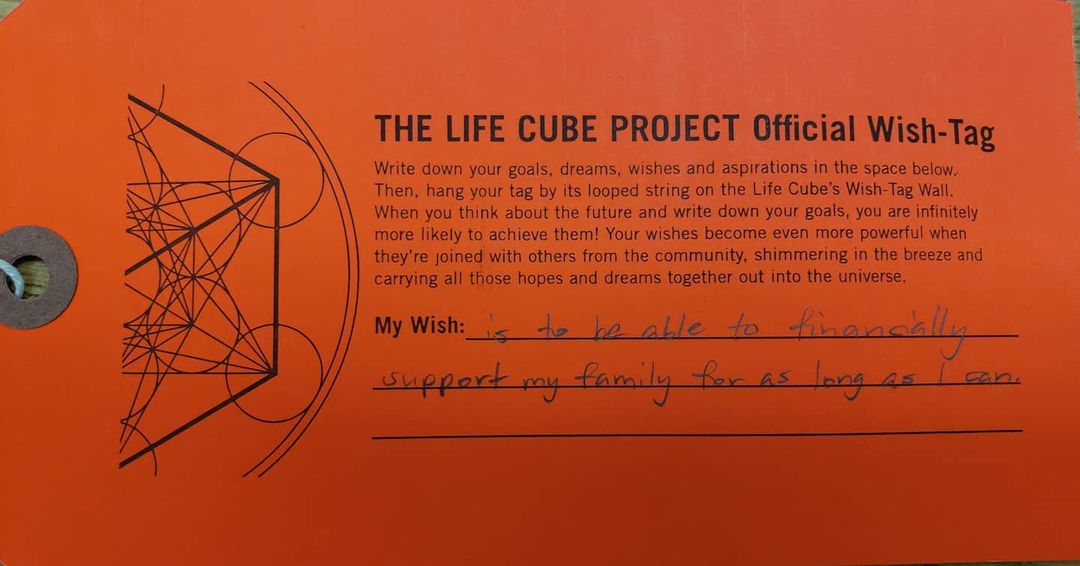 THE LIFE CUBE PROJECT Official Wish-Tag
Write down your goals, dreams, wishes and aspirations in the space below.
Then, hang your tag by its looped string on the Life Cube's Wish-Tag Wall.
When you think about the future and write down your goals, you are infinitely
more likely to achieve them! Your wishes become even more powerful when
they're joined with others from the community, shimmering in the breeze and
carrying all those hopes and dreams together out into the universe.
My Wish: is to be able to financially
support my family for as long as I can.